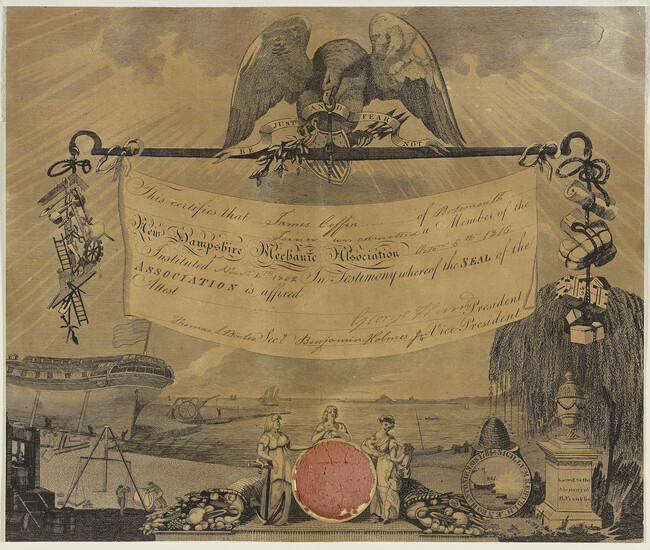 BE JUST AND FEAR NOT
This certifies that James Coffin of Portsmouth
Turner was admitted a Member of the
New Hampshire Mechanic Association Octor 5th 1815
Instituted Novr 4th 1802 In Testimony whereof the SEAL of the
ASSOCIATION is affixed
Attest
George President
Thomas Secy Benjamin Holmes Jr Vice President
Sacred to the
Memory of
B. Franklin